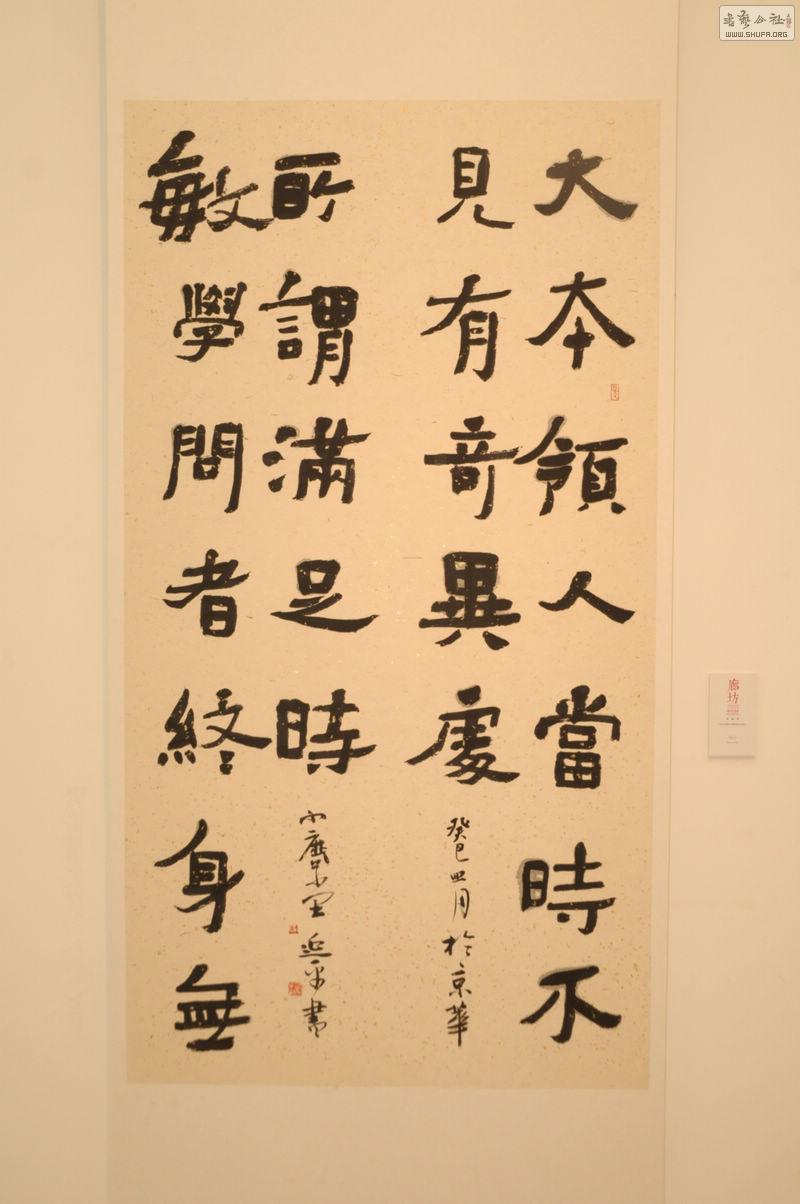 大本領人當時不
見有竒異處
癸巳四月於京華
敏學問者終身無
所謂滿足時
書
書藝公社
WWW.SHUFA.ORG
廊坊